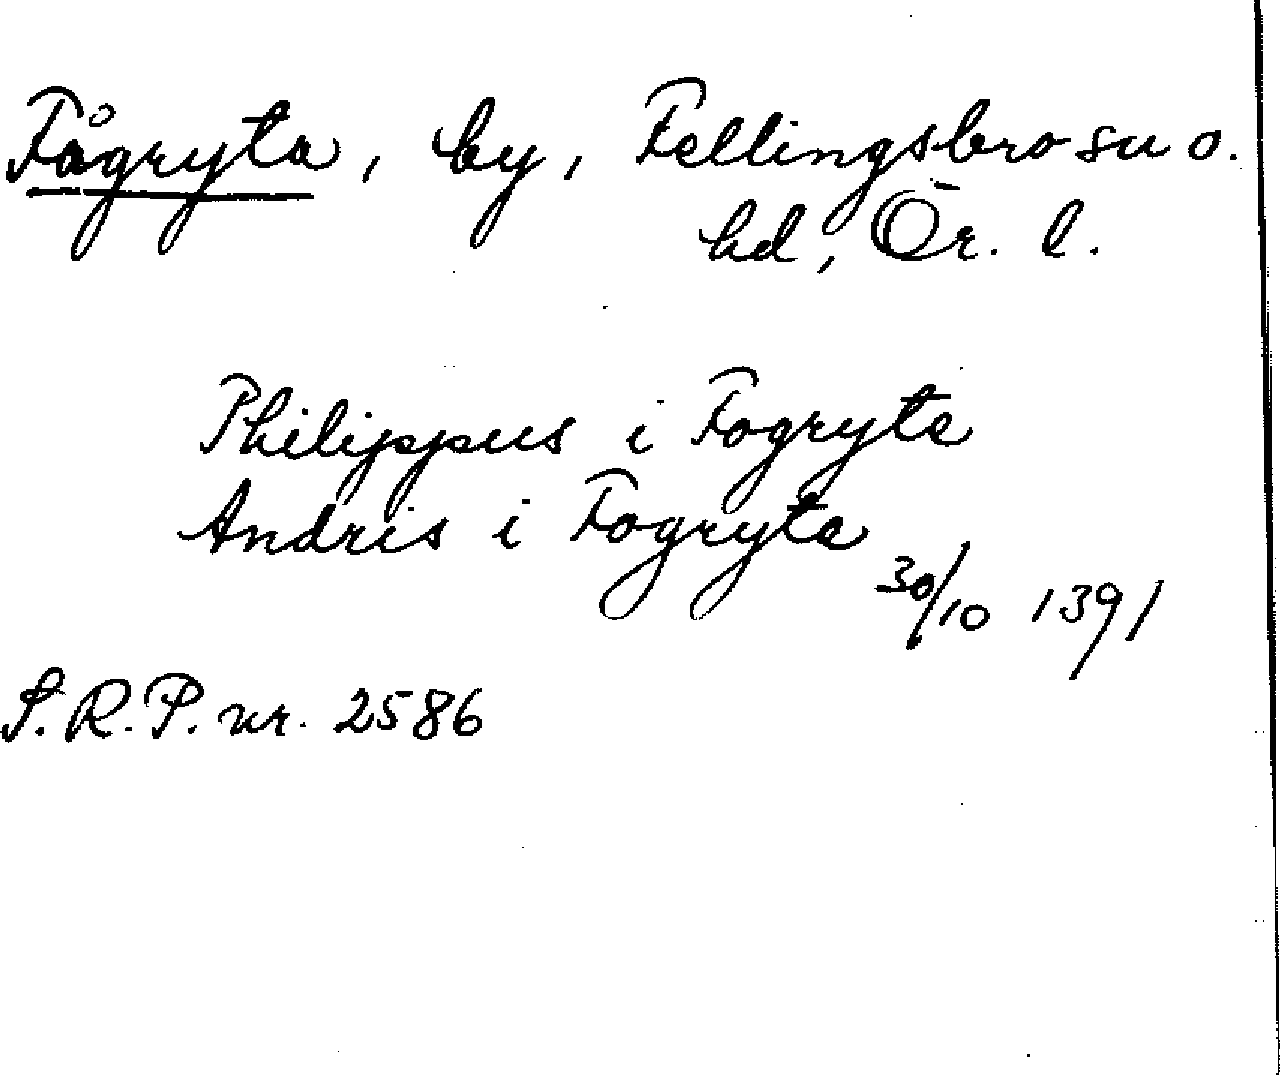 Fågryta, by, Fellingsbro sn o.
hd, Ör. l.
Philippus i Fogryta
Andris i Fogryta
30/10 1391
S.R.P. nr. 2586